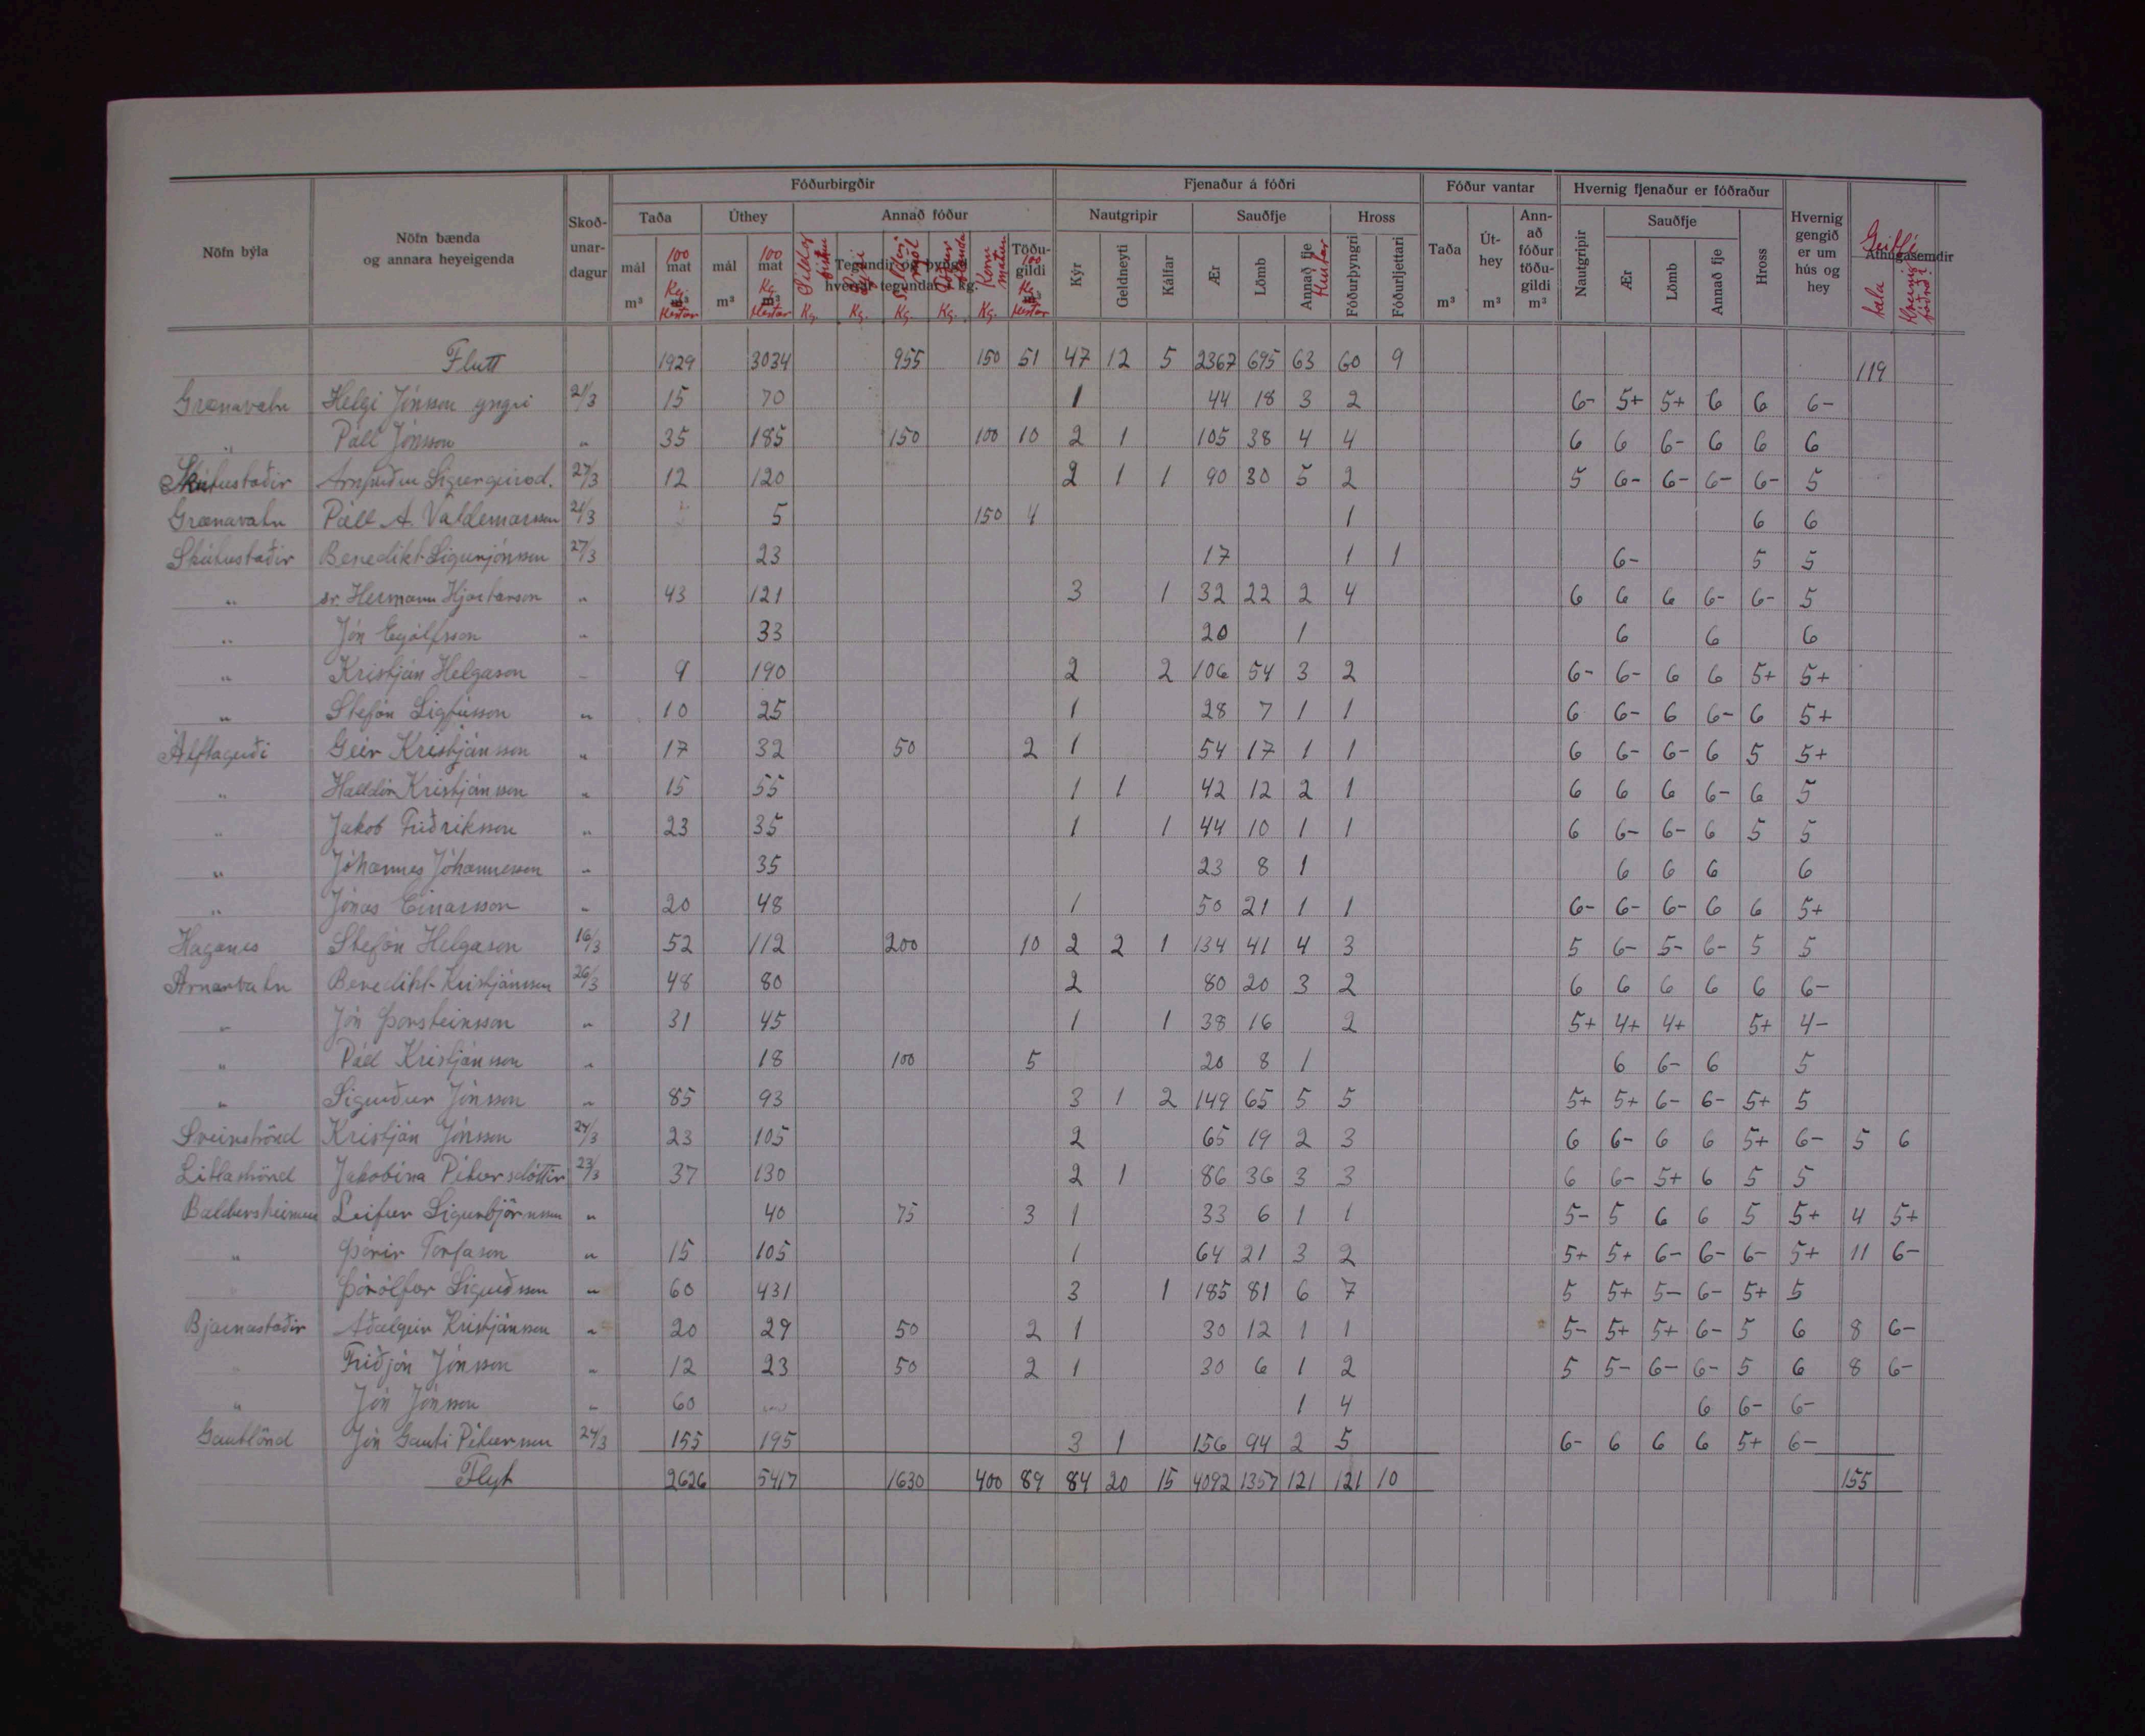 Fóðurbirgðir Fjenaður á fóðri Fóður vantar Hvernig fjenaður er fóðraður
Nöfn býla Nöfn bænda og annara heyeigenda Skoðunardagur Taða Úthey Annað fóður Nautgripir Sauðfje Hross Taða Úthey Annað fóður töðugildi Nautgripir Sauðfje Hross Hvernig gengið er um hús og hey Athugasemdir
mál m³ 100 mat Kg. m³ Hestar mál m³ 100 mat Kg m³ Hestar Tegundir og þyngd hverrar tegundar í kg. Síldarmjöl Kornmatur Töðugildi 100 Kg m³ Hestar Kýr Geldneyti Kálfar Ær Lömb Annað fje Hrútar Fóðurþyngri Fóðurljettari m³ m³ m³ Ær Lömb Annað fje Geitfé tala Hvernig fóðrað
Kg. Kg. Kg. Kg. Kg.
Flutt 1929 3034 955 150 51 47 12 5 2367 695 63 60 9 119
Grænavatn Helgi Jónsson yngri 21/3 15 70 1 44 18 3 2 6- 5+ 5+ 6 6 6-
" Páll Jónsson " 35 185 150 100 10 2 1 105 38 4 4 6 6 6- 6 6 6
Skútustaðir Arnfríður Sigurgeirsd. 27/3 12 120 2 1 1 90 30 5 2 5 6- 6- 6- 6- 5
Grænavatn Páll A. Valdemarsson 21/3 5 150 4 1 6 6
Skútustaðir Benedikt Sigurjónsson 27/3 23 17 1 1 6- 5 5
" sr. Hermann Hjartarson " 43 121 3 1 32 22 2 4 6 6 6 6- 6- 5
" Jón Eyjólfsson " 33 20 1 6 6 6
" Kristján Helgason " 9 190 2 2 106 54 3 2 6- 6- 6 6 5+ 5+
" Stefán Sigfússon " 10 25 1 28 7 1 1 6 6- 6 6- 6 5+
Álftagerði Geir Kristjánsson " 17 32 50 2 1 54 17 1 1 6 6- 6- 6 5 5+
" Halldór Kristjánsson " 15 55 1 1 42 12 2 1 6 6 6 6- 6 5
" Jakob Friðriksson " 23 35 1 1 44 10 1 1 6 6- 6- 6 5 5
" Jóhannes Jóhannesson " 35 23 8 1 6 6 6 6
" Jónas Einarsson " 20 48 1 50 21 1 1 6- 6- 6- 6 6 5+
Haganes Stefán Helgason 16/3 52 112 200 10 2 2 1 134 41 4 3 5 6- 5- 6- 5 5
Arnarvatn Benedikt Kristjánsson 26/3 48 80 2 80 20 3 2 6 6 6 6 6 6-
" Jón Þorsteinsson " 31 45 1 1 38 16 2 5+ 4+ 4+ 5+ 4-
" Páll Kristjánsson " 18 100 5 20 8 1 6 6- 6 5
" Sigurður Jónsson " 85 93 3 1 2 149 65 5 5 5+ 5+ 6- 6- 5+ 5
Sveinströnd Kristján Jónsson 24/3 23 105 2 65 19 2 3 6 6- 6 6 5+ 6- 5 6
Litlaströnd Jakobína Pétursdóttir 23/3 37 130 2 1 86 36 3 3 6 6- 5+ 6 5 5
Baldursheimur Leifur Sigurbjörnsson " 40 75 3 1 33 6 1 1 5- 5 6 6 5 5+ 4 5+
" Þórir Torfason " 15 105 1 64 21 3 2 5+ 5+ 6- 6- 6- 5+ 11 6-
Þórólfur Sigurðsson " 60 431 3 1 185 81 6 7 5 5+ 5- 6- 5+ 5
Bjarnastaðir Aðalgeir Kristjánsson " 20 29 50 2 1 30 12 1 1 5- 5+ 5+ 6- 5 6 8 6-
" Friðjón Jónsson " 12 23 50 2 1 30 6 1 2 5 5- 6- 6- 5 6 8 6-
" Jón Jónsson " 60 1 4 6 6- 6-
Gautlönd Jón Gauti Pétursson 24/3 155 195 3 1 156 94 2 5 6- 6 6 6 5+ 6-
Flyt 2626 5417 1630 400 89 84 20 15 4092 1357 121 121 10 155